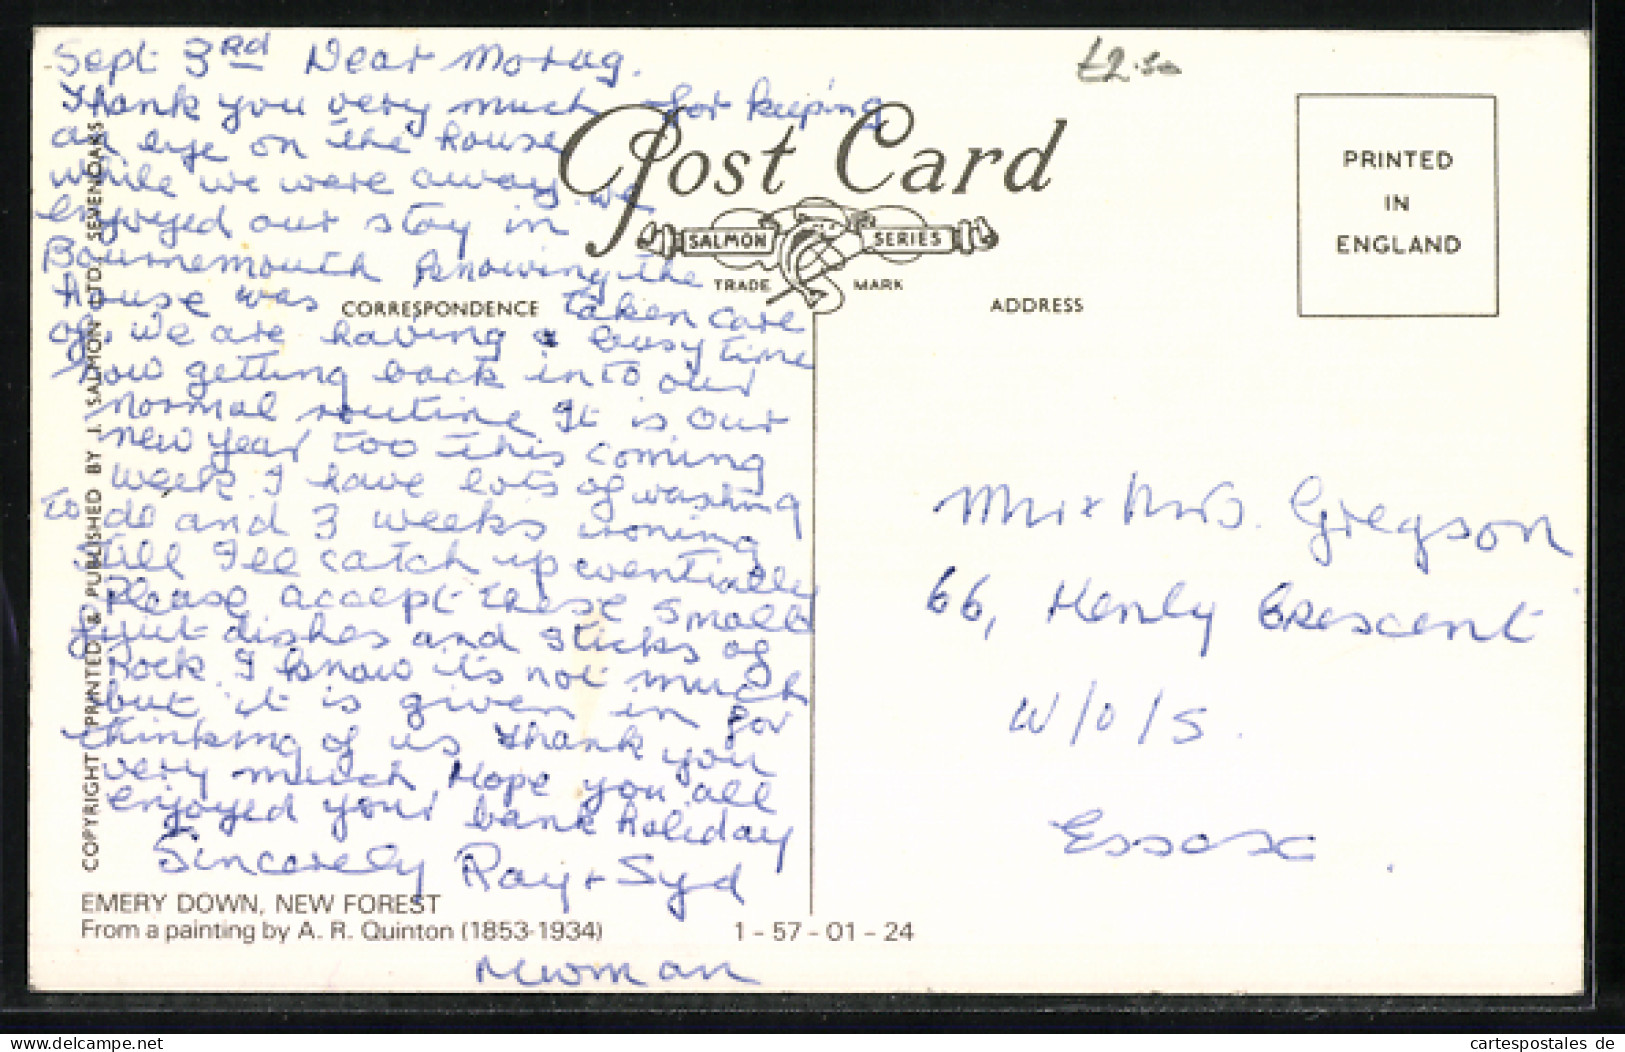 Sept 3rd Dear Morag.
Thank you very much for keeping
an eye on the house
while we were away. we
enjoyed our stay in
Bournemouth knowing the
house was taken care
of, we are having a busy time
now getting back into our
normal routine It is our
new year too this coming
week. I have lots of washing
to do and 3 weeks ironing
still I'll catch up eventually
Please accept these small
fruit dishes and sticks of
rock I know it's not much
but it is given in for
thinking of us Thank you
very much, Hope you all
enjoyed your bank holiday
Sincerely Ray + Syd
Newman
£2.50
Post Card
SALMON SERIES
TRADE MARK
CORRESPONDENCE
ADDRESS
PRINTED
IN
ENGLAND
Mr & Mrs. Gregson
66, Henly Crescent
W/O/S.
Essex.
COPYRIGHT PRINTED & PUBLISHED BY J. SALMON LTD., SEVENOAKS
EMERY DOWN, NEW FOREST
From a painting by A. R. Quinton (1853-1934)
1 - 57 - 01 - 24
Delcampe.net
cartespostales de